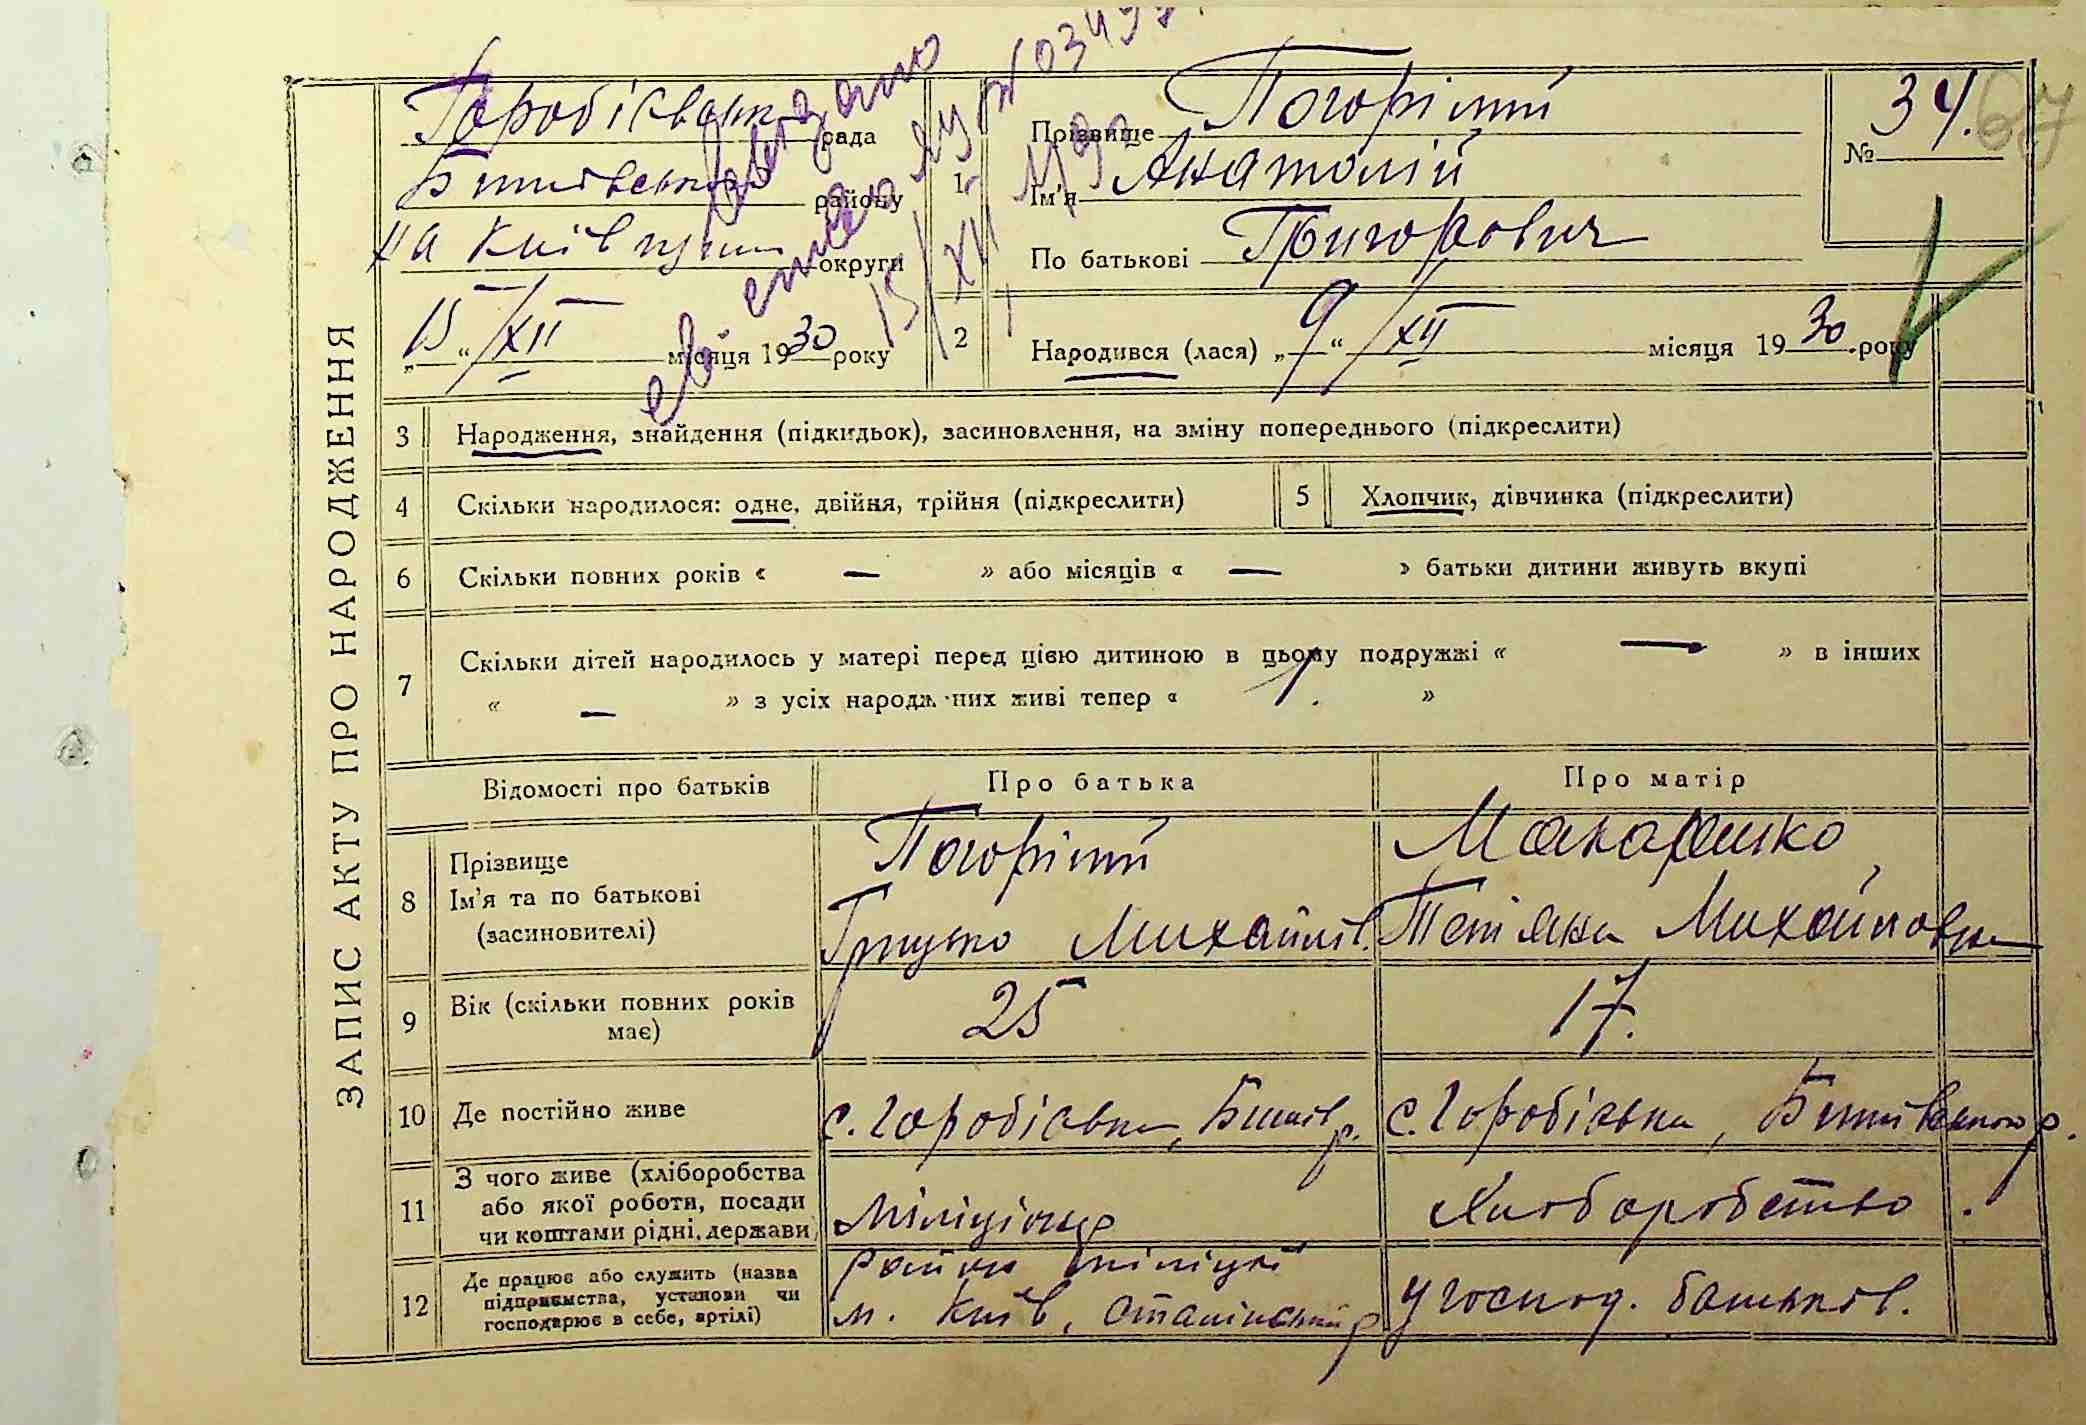 ЗАПИС АКТУ ПРО НАРОДЖЕННЯ
Горобіївська рада
Бишівського району
на Київщині округи
„15“ /XII місяця 1930 року
Видано
15/XII
1 Прізвище Погорілий
Ім'я Анатолій
По батькові Григорович
№ 34. 67
2 Народився (лася) „9“ /XII місяця 1930 року
3 Народження, знайдення (підкидьок), засиновлення, на зміну попереднього (підкреслити)
4 Скільки народилося: одне, двійня, трійня (підкреслити) 5 Хлопчик, дівчинка (підкреслити)
6 Скільки повних років « — » або місяців « — » батьки дитини живуть вкупі
7 Скільки дітей народилось у матері перед цією дитиною в цьому подружжі « — » в інших
« — » з усіх народж них живі тепер « 1. »
Відомості про батьків Про батька Про матір
8 Прізвище
Ім'я та по батькові
(засиновителі)
Погорілий
Грицько Михайлів.
Макаренко
Тетяна Михайловна
9 Вік (скільки повних років має) 25 17.
10 Де постійно живе с. Горобіївка, Бишів р. с. Горобіївка, Бишівського р.
11 З чого живе (хліборобства
або якої роботи, посади
чи коштами рідні, держави)
Міліціонер Хліборобство.
12 Де працює або служить (назва
підприємства, установи чи
господарює в себе, артілі)
Район міліції
м. Київ, Сталінський р
У господ. батьків.